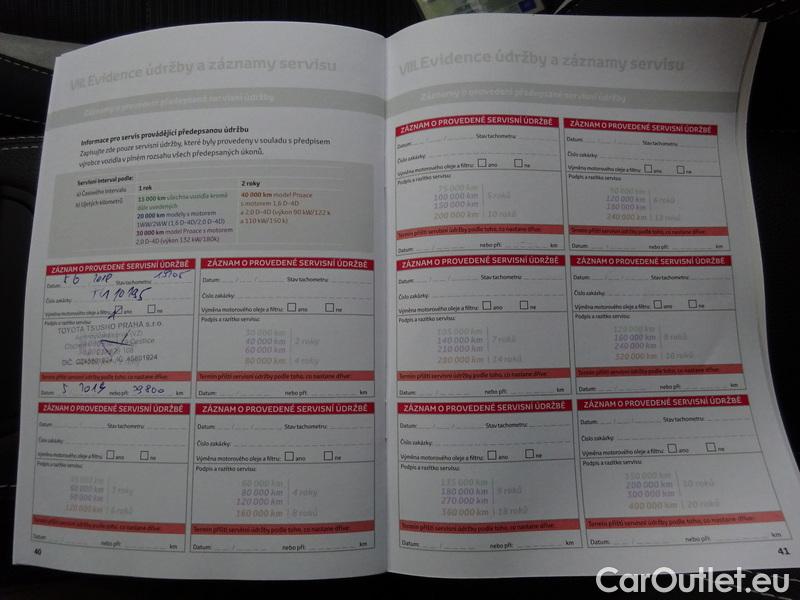 VIII. Evidence údržby a záznamy servisu
Záznamy o provedení předepsané servisní údržby
Informace pro servis provádějící předepsanou údržbu
Zapisujte zde pouze servisní údržby, které byly provedeny v souladu s předpisem
výrobce vozidla v plném rozsahu všech předepsaných úkonů.
Servisní interval podle:
a) Časového intervalu 1 rok 2 roky
b) Ujetých kilometrů
15 000 km všechna vozidla kromě
dále uvedených
20 000 km modely s motorem
1WW/2WW (1,6 D-4D/2,0 D-4D)
30 000 km model Proace s motorem
2,0 D-4D (výkon 132 kW/180k)
40 000 km model Proace
s motorem 1,6 D-4D
a 2,0 D-4D (výkon 90 kW/122 k
a 110 kW/150 k)
ZÁZNAM O PROVEDENÉ SERVISNÍ ÚDRŽBĚ
Datum: 2018 Stav tachometru:
Číslo zakázky:
Výměna motorového oleje a filtru: ano ne
Podpis a razítko servisu:
TOYOTA TSUSHO PRAHA s.r.o.
Termín příští servisní údržby podle toho, co nastane dříve:
Datum: 5 2019 nebo při: 29800 km
ZÁZNAM O PROVEDENÉ SERVISNÍ ÚDRŽBĚ
Datum: Stav tachometru:
Číslo zakázky:
Výměna motorového oleje a filtru: ano ne
Podpis a razítko servisu:
30 000 km
40 000 km 2 roky
60 000 km
80 000 km 4 roky
Termín příští servisní údržby podle toho, co nastane dříve:
Datum: nebo při: km
ZÁZNAM O PROVEDENÉ SERVISNÍ ÚDRŽBĚ
Datum: Stav tachometru:
Číslo zakázky:
Výměna motorového oleje a filtru: ano ne
Podpis a razítko servisu:
45 000 km
60 000 km 3 roky
90 000 km
120 000 km 6 roků
Termín příští servisní údržby podle toho, co nastane dříve:
Datum: nebo při: km
ZÁZNAM O PROVEDENÉ SERVISNÍ ÚDRŽBĚ
Datum: Stav tachometru:
Číslo zakázky:
Výměna motorového oleje a filtru: ano ne
Podpis a razítko servisu:
60 000 km
80 000 km 4 roky
120 000 km
160 000 km 8 roků
Termín příští servisní údržby podle toho, co nastane dříve:
Datum: nebo při: km
40
VIII. Evidence údržby a záznamy servisu
Záznamy o provedení předepsané servisní údržby
ZÁZNAM O PROVEDENÉ SERVISNÍ ÚDRŽBĚ
Datum: Stav tachometru:
Číslo zakázky:
Výměna motorového oleje a filtru: ano ne
Podpis a razítko servisu:
75 000 km
100 000 km 5 roků
150 000 km
200 000 km 10 roků
Termín příští servisní údržby podle toho, co nastane dříve:
Datum: nebo při: km
ZÁZNAM O PROVEDENÉ SERVISNÍ ÚDRŽBĚ
Datum: Stav tachometru:
Číslo zakázky:
Výměna motorového oleje a filtru: ano ne
Podpis a razítko servisu:
90 000 km
120 000 km 6 roků
180 000 km
240 000 km 12 roků
Termín příští servisní údržby podle toho, co nastane dříve:
Datum: nebo při: km
ZÁZNAM O PROVEDENÉ SERVISNÍ ÚDRŽBĚ
Datum: Stav tachometru:
Číslo zakázky:
Výměna motorového oleje a filtru: ano ne
Podpis a razítko servisu:
105 000 km
140 000 km 7 roků
210 000 km
280 000 km 14 roků
Termín příští servisní údržby podle toho, co nastane dříve:
Datum: nebo při: km
ZÁZNAM O PROVEDENÉ SERVISNÍ ÚDRŽBĚ
Datum: Stav tachometru:
Číslo zakázky:
Výměna motorového oleje a filtru: ano ne
Podpis a razítko servisu:
120 000 km
160 000 km 8 roků
240 000 km
320 000 km 16 roků
Termín příští servisní údržby podle toho, co nastane dříve:
Datum: nebo při: km
ZÁZNAM O PROVEDENÉ SERVISNÍ ÚDRŽBĚ
Datum: Stav tachometru:
Číslo zakázky:
Výměna motorového oleje a filtru: ano ne
Podpis a razítko servisu:
135 000 km
180 000 km 9 roků
270 000 km
360 000 km 18 roků
Termín příští servisní údržby podle toho, co nastane dříve:
Datum: nebo při: km
ZÁZNAM O PROVEDENÉ SERVISNÍ ÚDRŽBĚ
Datum: Stav tachometru:
Číslo zakázky:
Výměna motorového oleje a filtru: ano ne
Podpis a razítko servisu:
150 000 km
200 000 km 10 roků
300 000 km
400 000 km 20 roků
Termín příští servisní údržby podle toho, co nastane dříve:
Datum: nebo při: km
41
CarOutlet.eu